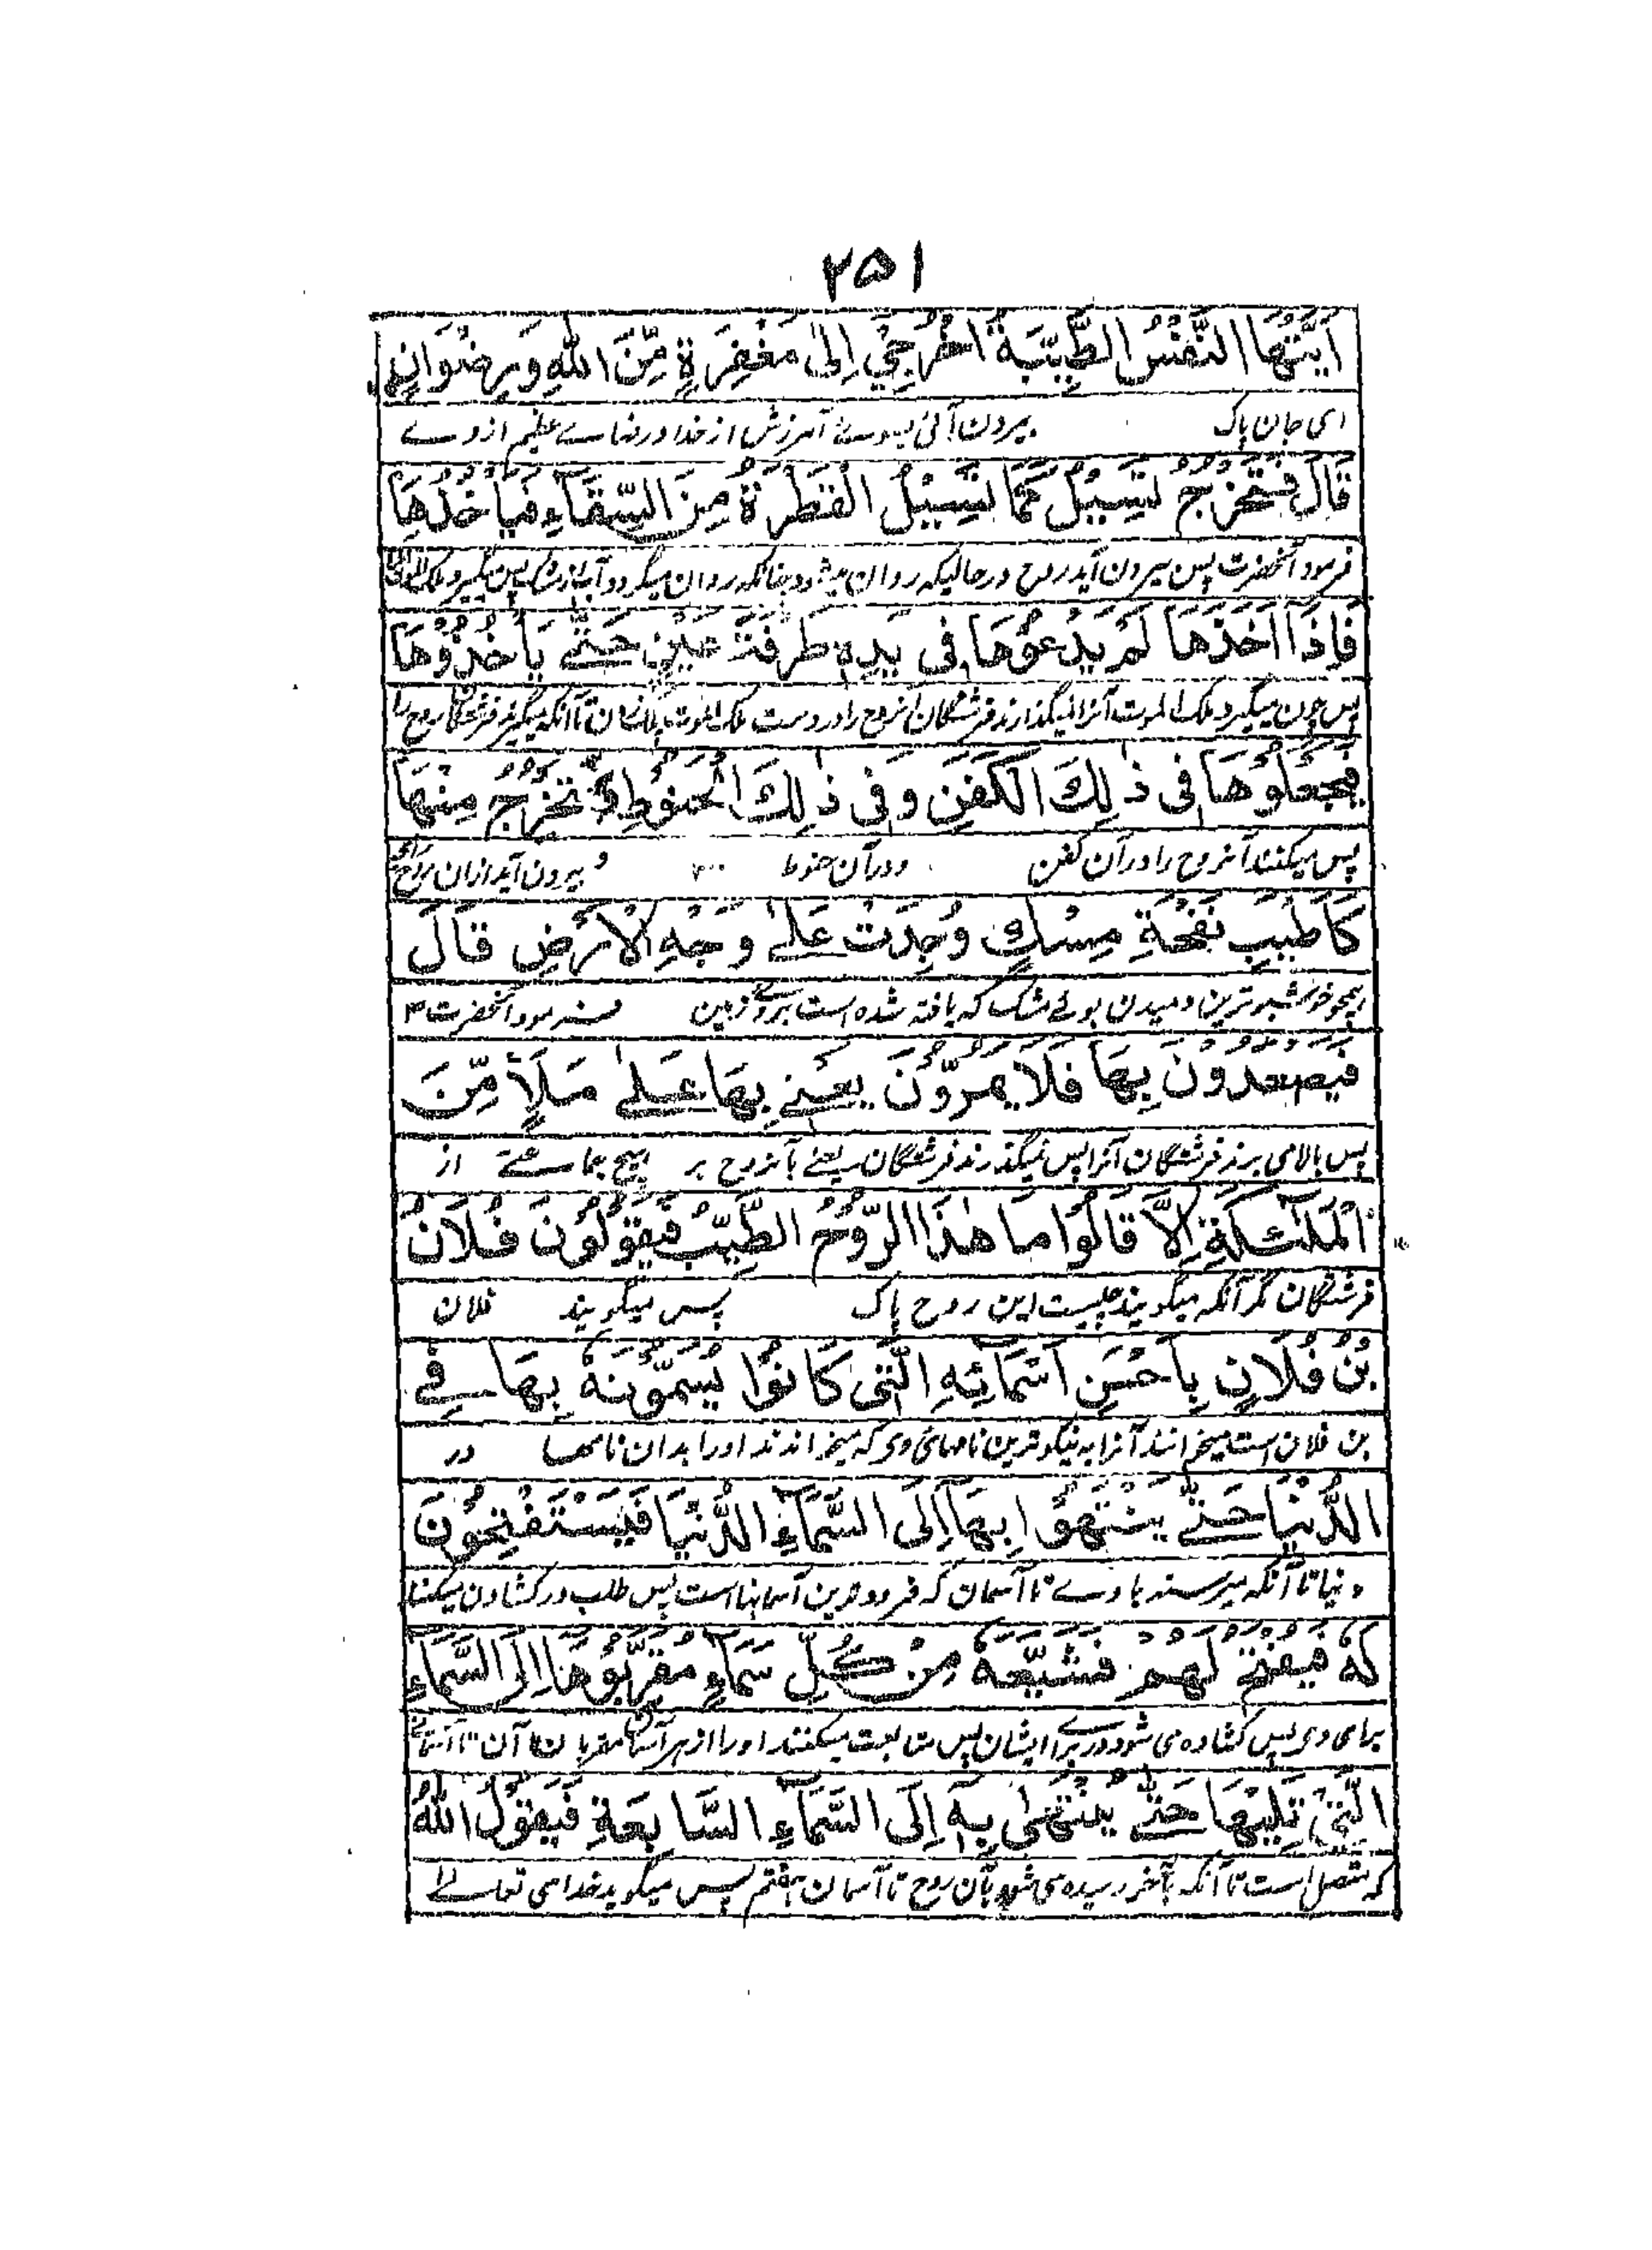 ۲۵۱
اَيَّتُهَا النَّفْسُ الطَّيِّبَةُ اخْرُجِيْ اِلٰى مَغْفِرَةٍ مِّنَ اللّٰهِ وَرِضْوَانٍ
ای جان پاک بیرون آئی بسوے آمرزش از خدا و رضاے عظیم از وے
قَالَ فَتَخْرُجُ تَسِيْلُ كَمَا تَسِيْلُ الْقَطْرَةُ مِنَ السِّقَاءِ فَيَاْخُذُهَا
فرمود آنحضرت پس بیرون آید روح در حالیکه روان میشود چنانکه روان میگردد آب از مشک پس میگیرد ملک الموت
فَاِذَا اَخَذَهَا لَمْ يَدَعُوْهَا فِى يَدِهٖ طَرْفَةَ عَيْنٍ حَتّٰے يَاْخُذُوْهَا
پس چون میگیرد ملک الموت آنرا نمیگذارند فرشتگان آنروح را در دست ملک الموت یک زمان تا آنکه میگیرند فرشتگان روح را
فَيَجْعَلُوْهَا فِى ذٰلِكَ الْكَفَنِ وَفِى ذٰلِكَ الْحَنُوْطِ وَتَخْرُجُ مِنْهَا
پس میکنند آنروح را در آن کفن و در آن حنوط و بیرون آید ازان روح
كَاَطْيَبِ نَفْحَةِ مِسْكٍ وُجِدَتْ عَلٰے وَجْهِ الْاَرْضِ قَالَ
همچو خوشبو ترین دمیدن بوئے مشک که یافته شده است بر روے زمین فرمود آنحضرت ۴
فَيَصْعَدُوْنَ بِهَا فَلَا يَمُرُّوْنَ يَعْنِے بِهَا عَلٰے مَلَاٍ مِّنَ
پس بالا می برند فرشتگان آنرا پس نمیگذرند فرشتگان یعنے بآنروح بر هیچ جماعتے از
الْمَلٰٓئِكَةِ اِلَّا قَالُوْا مَا هٰذَا الرُّوْحُ الطَّيِّبُ فَيَقُوْلُوْنَ فُلَانُ
فرشتگان مگر آنکه میگویند چیست این روح پاک پس میگویند فلان
بْنُ فُلَانٍ بِاَحْسَنِ اَسْمَآئِهِ الَّتِى كَانُوْا يُسَمُّوْنَهٗ بِهَا فِے
بن فلان است میخوانند آنرا به نیکو ترین نامهای وی که میخواندند او را بدان نامها در
الدُّنْيَا حَتّٰے يَنْتَهُوْا بِهَا اِلَى السَّمَآءِ الدُّنْيَا فَيَسْتَفْتِحُوْنَ
دنیا تا آنکه میرسند با وے تا آسمان که فرودترین آسمانها است پس طلب در کشادن میکنند
لَهٗ فَيُفْتَحُ لَهُمْ فَشَيَّعَهٗ مِنْ كُلِّ سَمَاءٍ مُقَرَّبُوْهَا اِلَى السَّمَاءِ
برای وی پس کشاده می شود در برے ایشان پس متابعت میکنند او را از هر آسمان مقربان آن تا آسمانے
الَّتِىْ تَلِيْهَا حَتّٰے يُنْتَهٰى بِهٖ اِلَى السَّمَآءِ السَّابِعَةِ فَيَقُوْلُ اللّٰهُ
که متصل است تا آنکه بآخر رسیده می شود بآن روح تا آسمان هفتم پس میگوید خدای تعالے